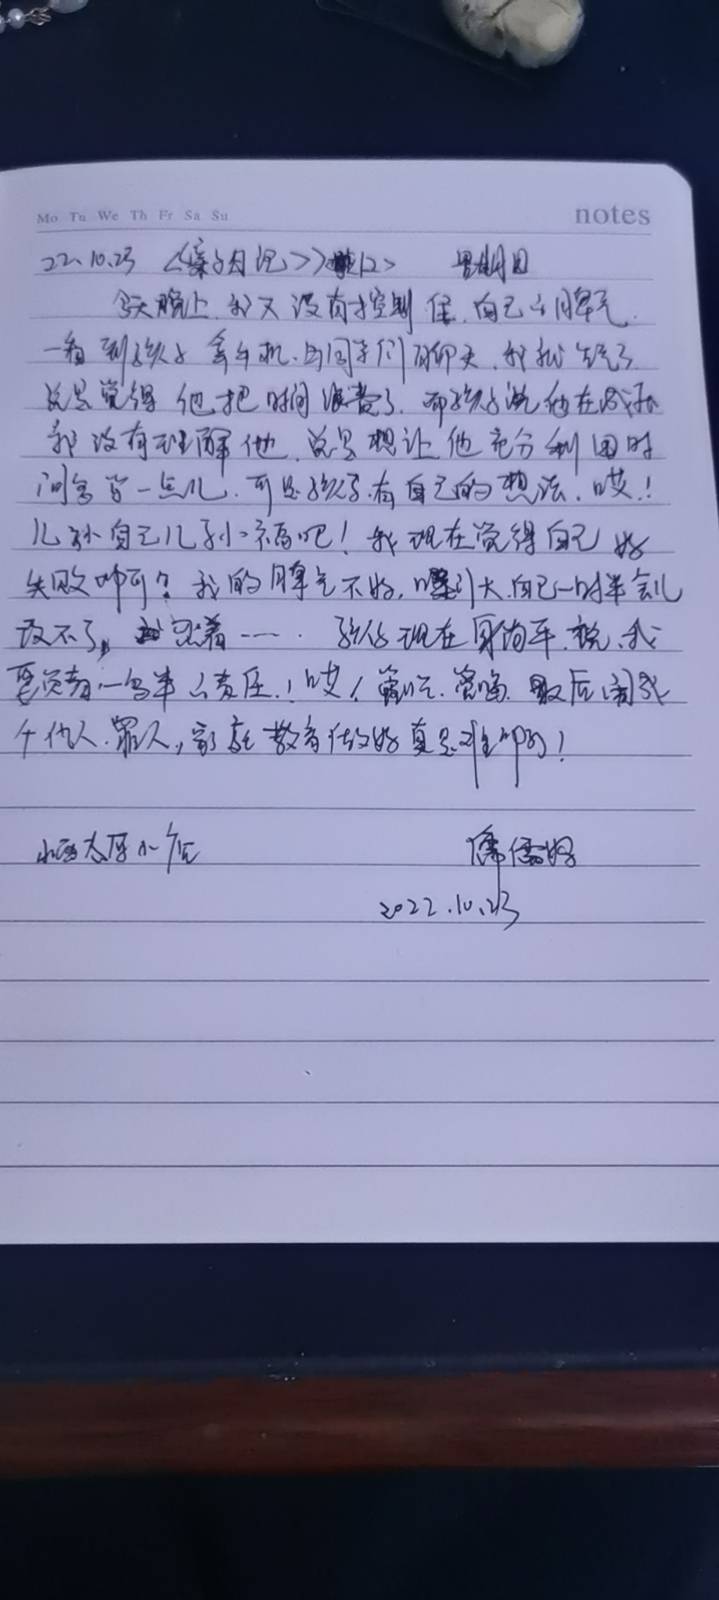 Mo Tu We Th Fr Sa Su
notes
22.10.23 《亲子日记》〈12〉 星期日
今天晚上,我又没有控制住自己的脾气.
一看到孩子拿手机与同学们聊天,我就生气了
总是觉得他把时间浪费了.而孩子说他在
我没有理解他,总是想让他充分利用时
间多学一点儿.可是孩子有自己的想法.哎!
儿孙自己儿孙福吧!我现在觉得自己好
失败啊?我的脾气不好,嗓门大.自己一时半会儿
改不了,忍着……. 孩子现在 说、我
要负责一多半的责任!哎!管吃、管喝 最后闹成
个仇人、罪人,家庭教育做好真是难啊!
2022.10.23